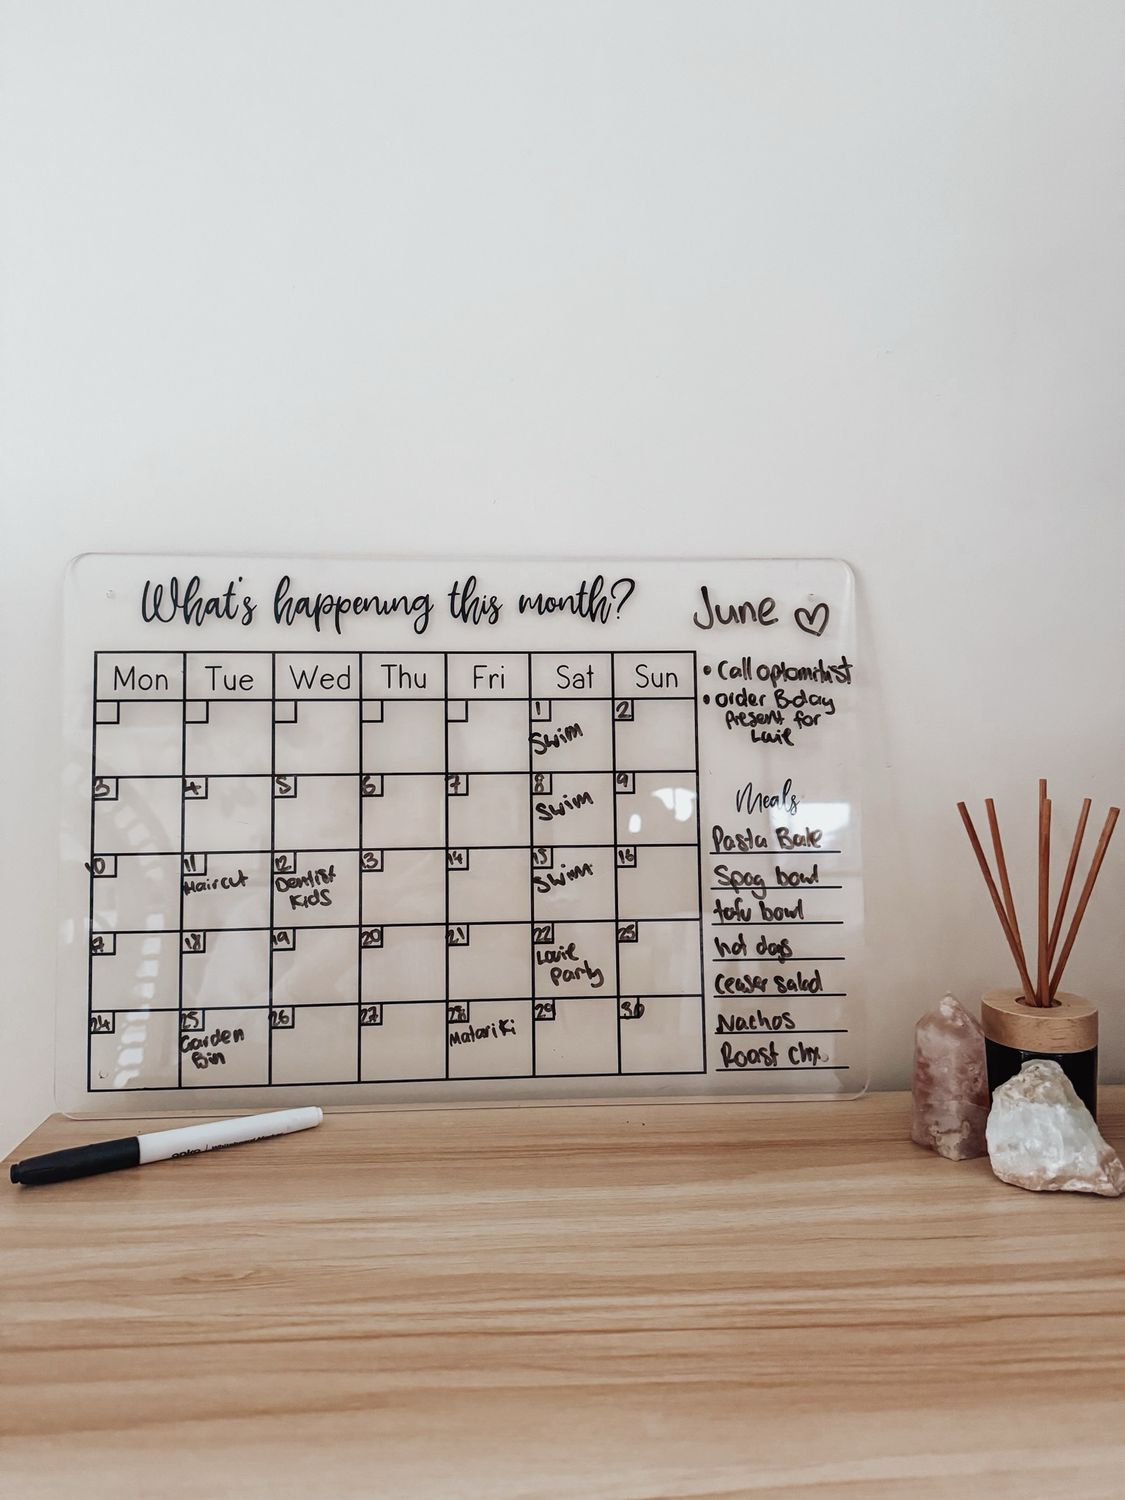 What's happening this month?
June
Mon Tue Wed Thu Fri Sat Sun
1 2
Swim
3 4 5 6 7 8 9
Swim
10 11 12 13 14 15 16
Haircut
Dentist
Kids
Swim
17 18 19 20 21 22 23
Party
24 25 26 27 28 29 30
Garden
Bin
Matariki
• Call
• order B-day
Present for
Meals
Pasta Bake
Spag bowl
tofu bowl
hot dogs
Ceaser salad
Nachos
Roast Chx